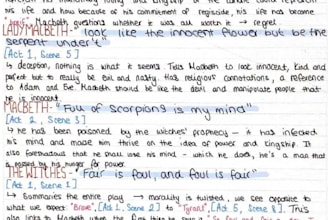 his life and how because of his commitment of regicide, his life has become
Macbeth questions whether it was all worth it → regret
LADY MACBETH - "look like the innocent flower but be the
serpent under't"
[Act 1, Scene 5]
↳ deception, nothing is what it seems. Tells Macbeth to look innocent, kind and
perfect but to really be evil and nasty. Has religious connotations, a reference
to Adam and Eve. Macbeth should be like the devil and manipulate people that
he is innocent
MACBETH - "Full of scorpions is my mind"
[Act 2, Scene 3]
↳ he has been poisoned by the witches' prophecy - it has infected his
mind and made him thrive on the idea of power and kingship. It
also foreshadows that he shall lose his mind - which he does, he's a man that
is posed by his hunger for power
THE WITCHES - "Fair is foul, and foul is fair"
[Act 1, Scene 1]
↳ Summaries the entire play → morality is twisted, we see opposite to
what we expect "Brave", [Act 1, Scene 2] to "Tyrant", [Act 5, Scene 8]. This
also links to Macbeth when the first thing he says is "So foul and fair a